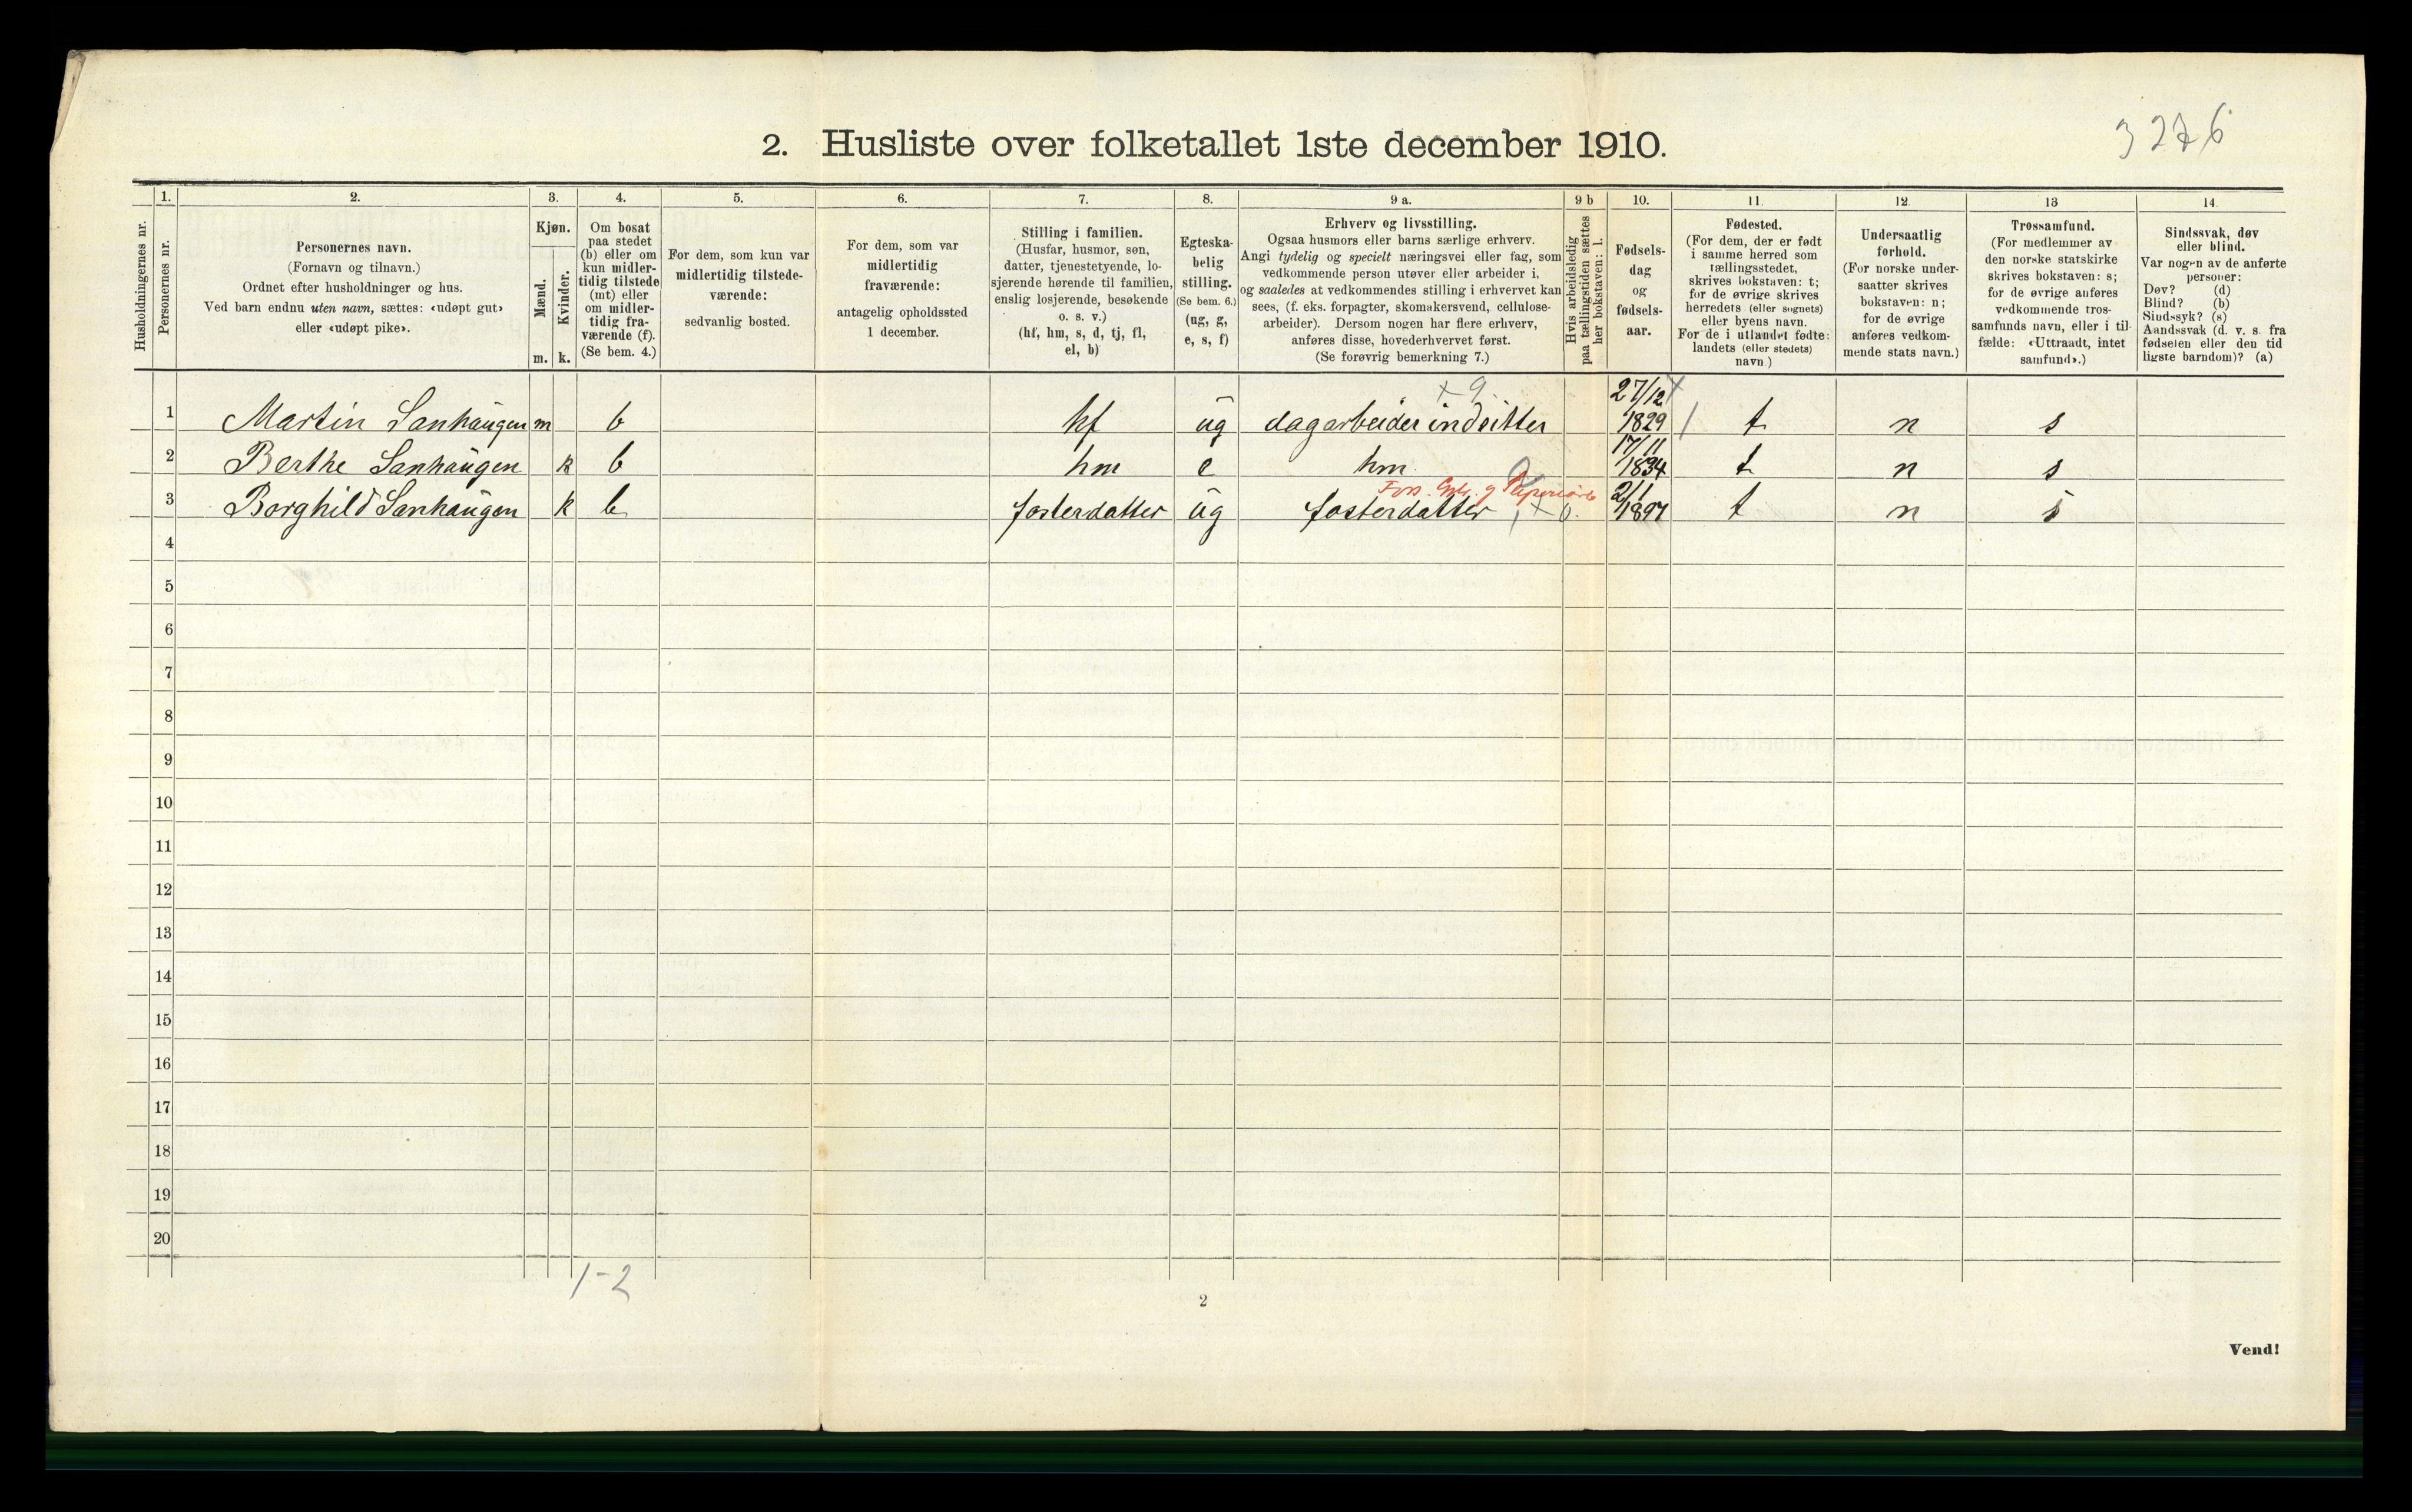 3276
2. Husliste over folketallet 1ste december 1910.
Husholdningernes nr.
1.
Personernes nr.
2.
Personernes navn.
(Fornavn og tilnavn.)
Ordnet efter husholdninger og hus.
Ved barn endnu uten navn, sættes: «udøpt gut»
eller «udøpt pike».
3.
Kjøn.
Mænd.
m.
Kvinder.
k.
4.
Om bosat
paa stedet
(b) eller om
kun midler-
tidig tilstede
(mt) eller
om midler-
tidig fra-
værende (f).
(Se bem. 4.)
5.
For dem, som kun var
midlertidig tilstede-
værende:
sedvanlig bosted.
6.
For dem, som var
midlertidig
fraværende:
antagelig opholdssted
1 december.
7.
Stilling i familien.
(Husfar, husmor, søn,
datter, tjenestetyende, lo-
sjerende hørende til familien,
enslig losjerende, besøkende
o. s. v.)
(hf, hm, s, d, tj, fl,
el, b)
8.
Egteska-
belig
stilling.
(Se bem. 6.)
(ug, g,
e, s, f)
9 a.
Erhverv og livsstilling.
Ogsaa husmors eller barns særlige erhverv.
Angi tydelig og specielt næringsvei eller fag, som
vedkommende person utøver eller arbeider i,
og saaledes at vedkommendes stilling i erhvervet kan
sees, (f. eks. forpagter, skomakersvend, cellulose-
arbeider). Dersom nogen har flere erhverv,
anføres disse, hovederhvervet først.
(Se forøvrig bemerkning 7.)
9 b
Hvis arbeidsledig
paa tællingstiden sættes
her bokstaven: l.
10.
Fødsels-
dag
og
fødsels-
aar.
11.
Fødested.
(For dem, der er født
i samme herred som
tællingsstedet,
skrives bokstaven: t;
for de øvrige skrives
herredets (eller sognets)
eller byens navn.
For de i utlandet fødte:
landets (eller stedets)
navn.)
12
Undersaatlig
forhold.
(For norske under-
saatter skrives
bokstaven: n;
for de øvrige
anføres vedkom-
mende stats navn.)
13
Trossamfund.
(For medlemmer av
den norske statskirke
skrives bokstaven: s;
for de øvrige anføres
vedkommende tros-
samfunds navn, eller i til-
fælde: «Uttraadt, intet
samfund».)
14
Sindssvak, døv
eller blind.
Var nogen av de anførte
personer:
Døv? (d)
Blind? (b)
Sindssyk? (s)
Aandssvak (d. v. s. fra
fødselen eller den tid
ligste barndom)? (a)
x 9. 27/12
1 Martin Sanhaugen m b hf ug dagarbeider indsitter 1829 t n s
17/11
2 Berthe Sanhaugen k b hm e hm 1834 t n s
2/1
3 Borghild Sanhaugen k b fosterdatter ug fosterdatter 1897 t n s
4
5
6
7
8
9
10
11
12
13
14
15
16
17
18
19
20
1-2
2
Vend!